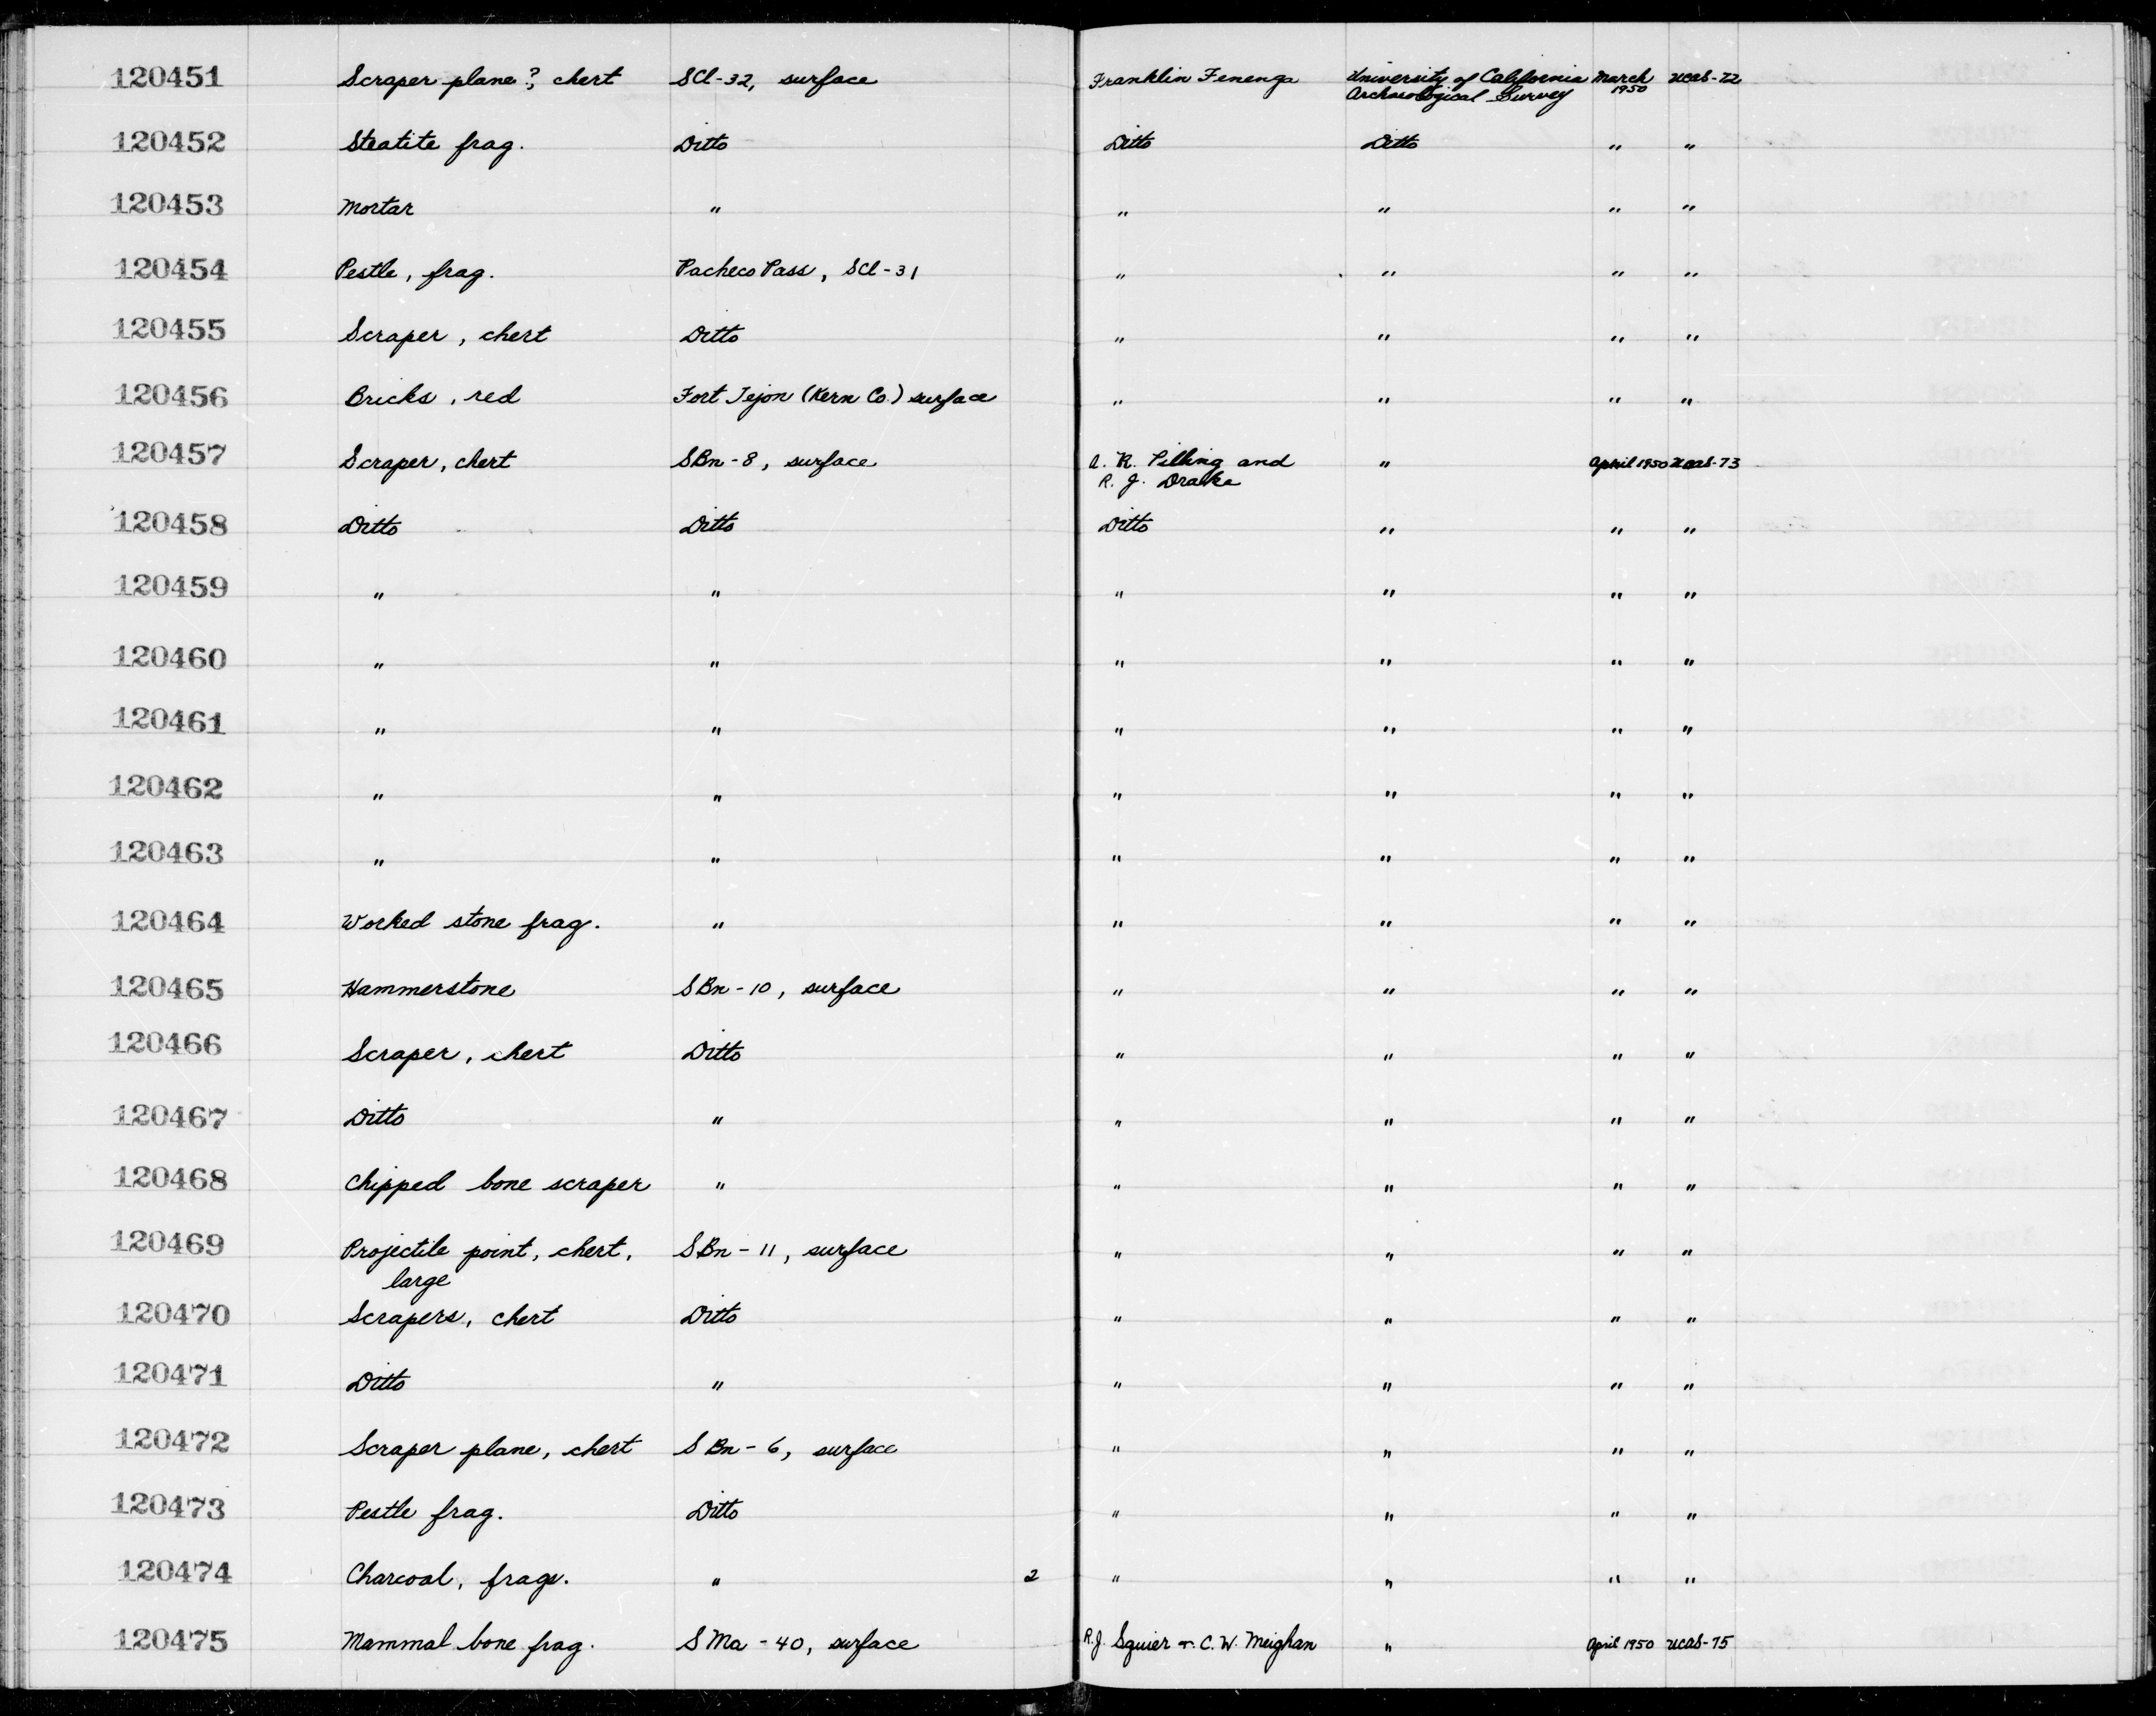 120451 Scraper plane?, chert SCl-32, surface Franklin Fenenga University of California March 1950 UCAS-72
Archaeological Survey
120452 Steatite frag. Ditto Ditto Ditto " "
120453 Mortar " " " " "
120454 Pestle, frag. Pacheco Pass, SCl-31 " " " "
120455 Scraper, chert Ditto " " " "
120456 Bricks, red Fort Tejon (Kern Co.) surface " " " "
120457 Scraper, chert SBn-8, surface A. R. Pilling and " April 1950 UCAS-73
R. J. Drake
120458 Ditto Ditto Ditto " " "
120459 " " " " " "
120460 " " " " " "
120461 " " " " " "
120462 " " " " " "
120463 " " " " " "
120464 Worked stone frag. " " " " "
120465 Hammerstone SBn-10, surface " " " "
120466 Scraper, chert Ditto " " " "
120467 Ditto " " " " "
120468 Chipped bone scraper " " " " "
120469 Projectile point, chert, SBn-11, surface " " " "
large
120470 Scrapers, chert Ditto " " " "
120471 Ditto " " " " "
120472 Scraper plane, chert SBn-6, surface " " " "
120473 Pestle frag. Ditto " " " "
120474 Charcoal, frags. " 2 " " " "
120475 Mammal bone frag. SMa-40, surface R.J. Squier & C. W. Meighan " April 1950 UCAS-75